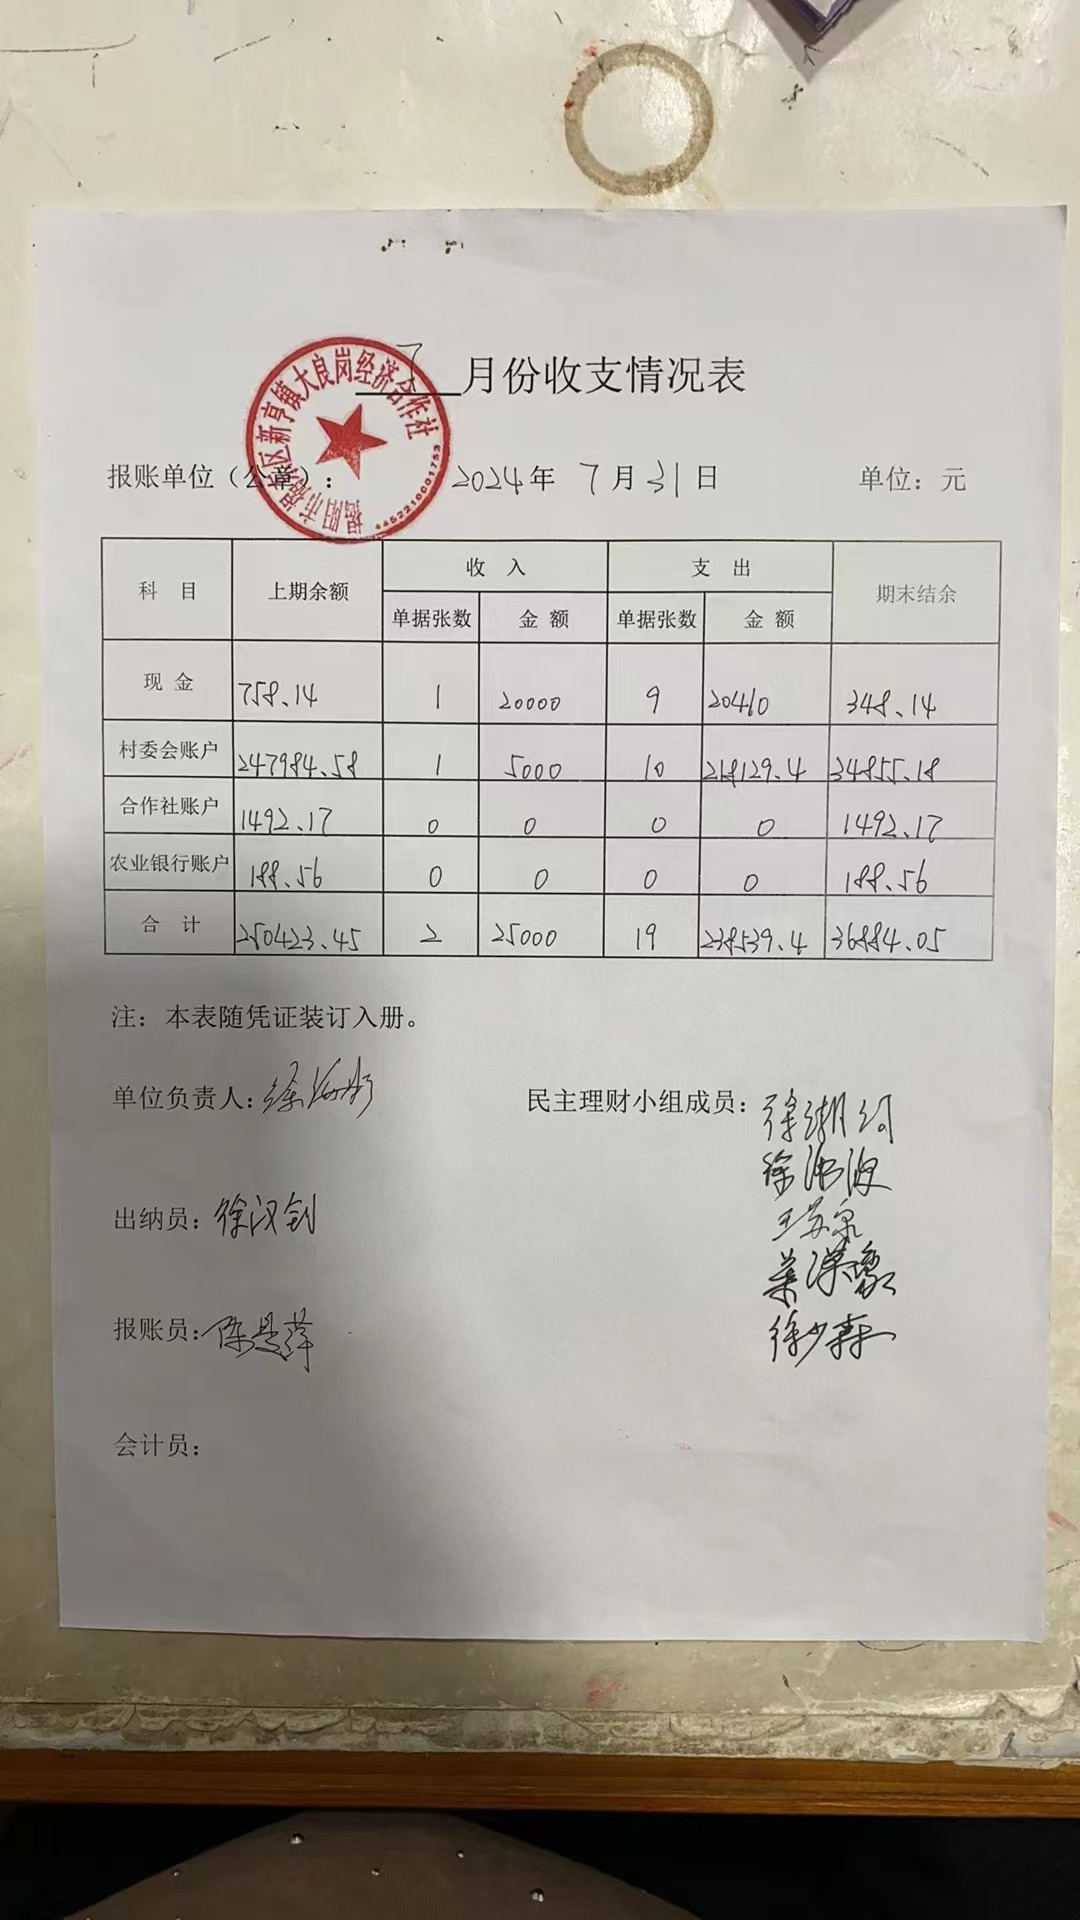 7月份收支情况表
揭阳市揭东区新亨镇大良岗经济合作社
4452210001753
报账单位（公章）： 2024年 7月31日 单位：元
科 目 上期余额 收 入 支 出 期末结余
单据张数 金 额 单据张数 金 额
现 金 758.14 1 20000 9 20410 348.14
村委会账户 247984.58 1 5000 10 218129.4 34855.18
合作社账户 1492.17 0 0 0 0 1492.17
农业银行账户 188.56 0 0 0 0 188.56
合 计 250423.45 2 25000 19 238539.4 36884.05
注：本表随凭证装订入册。
单位负责人： 民主理财小组成员：
出纳员：徐汉钊
报账员：陈是萍
会计员：